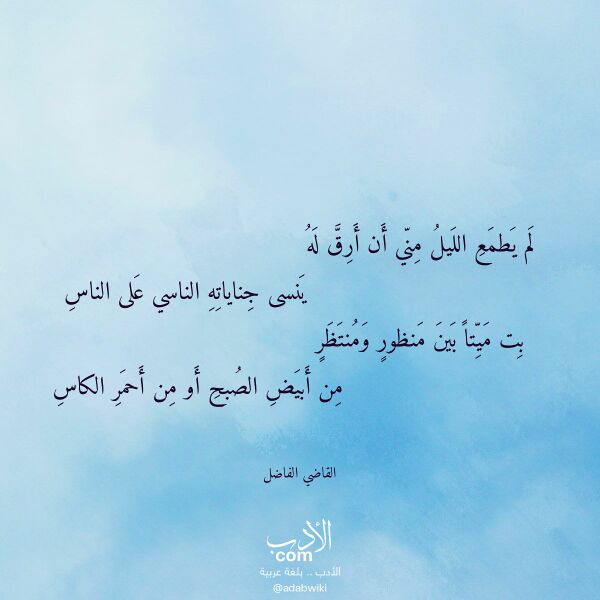 لَم يَطمَعِ اللَيلُ مِنّي أَن أَرِقَّ لَهُ
يَنسى جِناياتِهِ الناسي عَلى الناسِ
بِت مَيِّتاً بَينَ مَنظورٍ وَمُنتَظَرٍ
مِن أَبيَضِ الصُبحِ أَو مِن أَحمَرِ الكاسِ
القاضي الفاضل
الأدب
com
الأدب .. بلغة عربية
@adabwiki